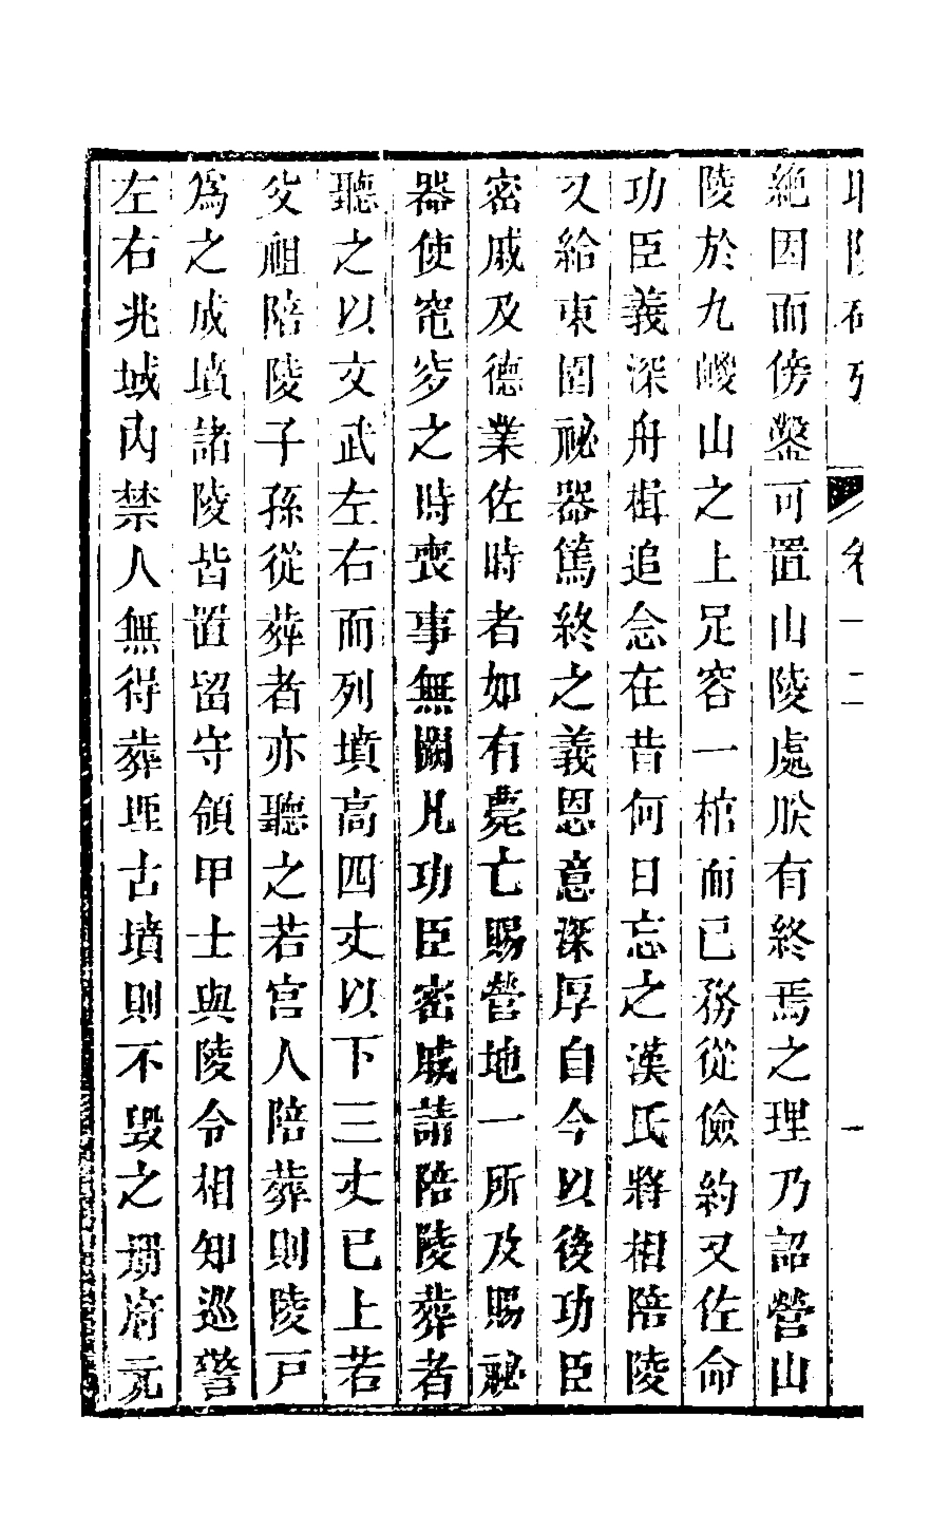 昭陵碑 卷一二 一
絶因而傍鑿可置山陵處朕有終焉之理乃詔營山
陵於九嵕山之上足容一棺而已務從儉約又佐命
功臣義深舟楫追念在昔何日忘之漢氏將相陪陵
又給東園祕器篤終之義恩意深厚自今以後功臣
密戚及德業佐時者如有薨亡賜營地一所及賜祕
器使窀穸之時喪事無闕凡功臣密戚請陪陵葬者
聽之以文武左右而列墳高四丈以下三丈已上若
父祖陪陵子孫從葬者亦聽之若宮人陪葬則陵戸
爲之成墳諸陵皆置留守領甲士與陵令相知巡警
左右兆域內禁人無得葬埋古墳則不毀之册府元